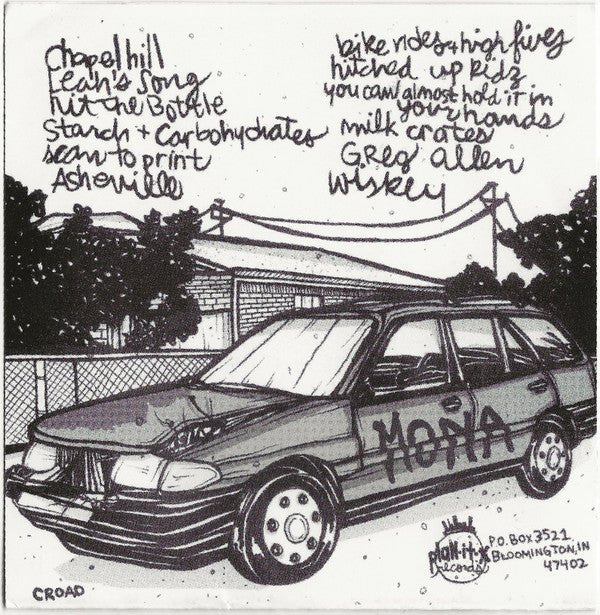 Chapel hill
Leah's Song
hit the Bottle
Starch + Carbohydrates
scan to print
Asheville
bike rides + high fives
hitched up kidz
you can almost hold it in
your hands
milk crates
G.Reg allen
wiskey
MONA
plan-it-x
records
P.O. BOX 3521
BLOOMINGTON, IN
47402
CROAD